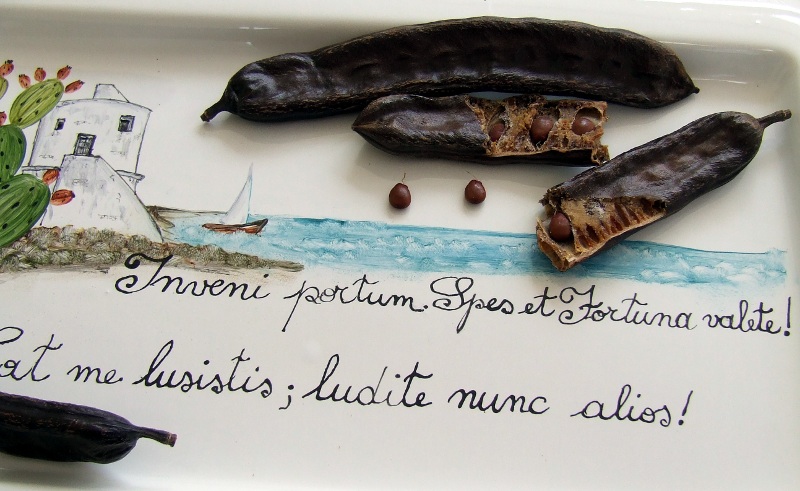 Inveni portum. Spes et Fortuna valete!
Sat me lusistis; ludite nunc alios!